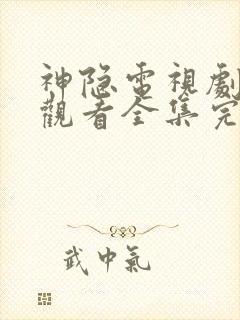 神隐電視劇
觀看全集完
武中氣